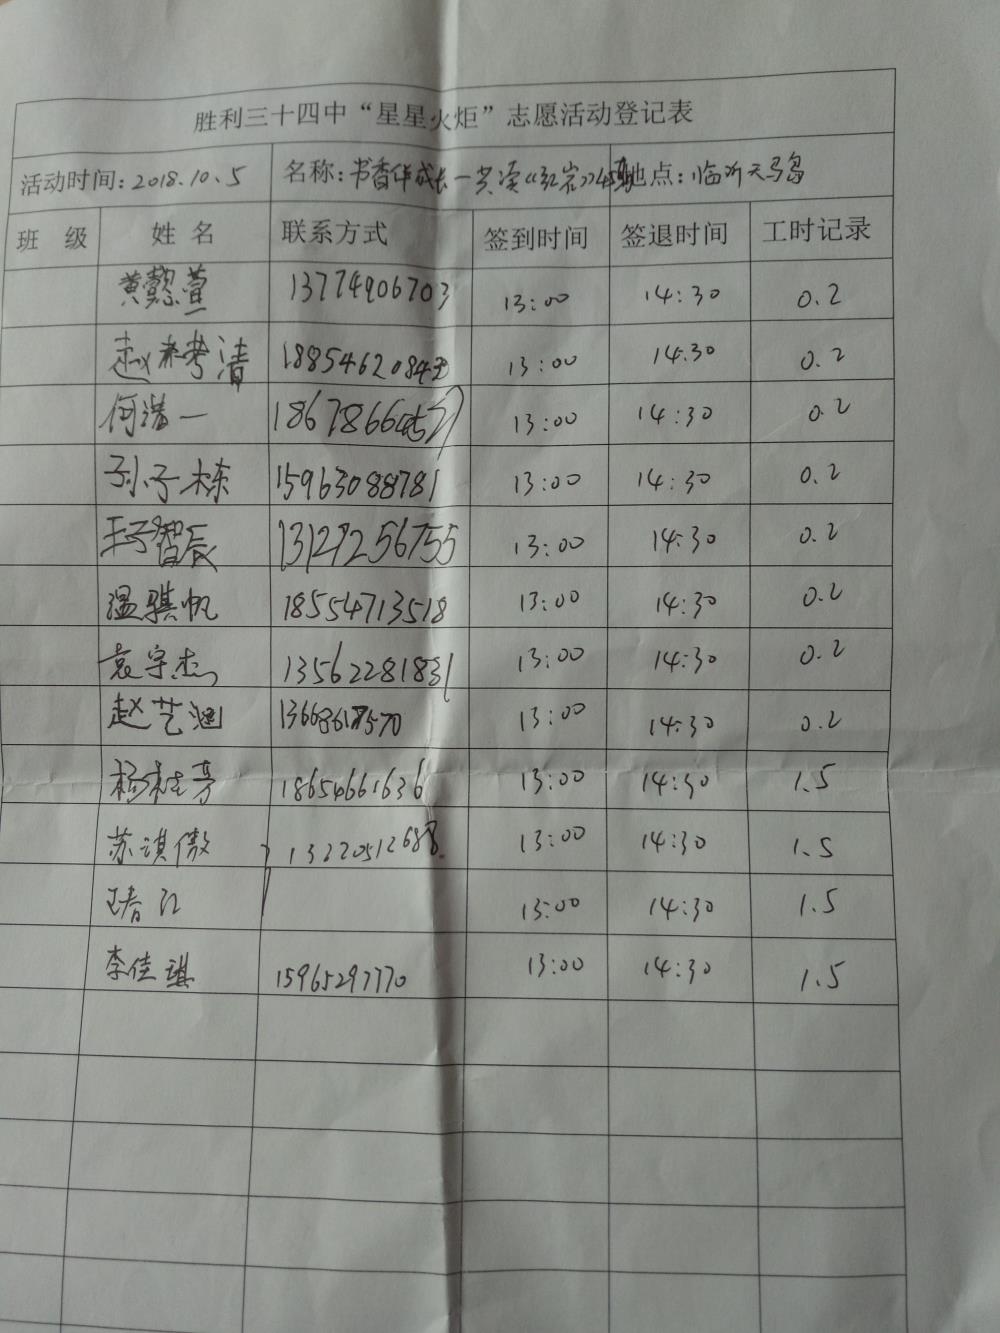 胜利三十四中“星星火炬”志愿活动登记表
活动时间:2018.10.5 名称:书香伴成长一共读《红岩》 地点:临沂天马岛
班 级 姓 名 联系方式 签到时间 签退时间 工时记录
黄懿萱 13774906703 13:00 14:30 0.2
赵 清 13:00 14:30 0.2
何浩一 13:00 14:30 0.2
孙子栋 15963088781 13:00 14:30 0.2
智辰 13:00 14:30 0.2
温骐帆 18554713518 13:00 14:30 0.2
袁宇杰 13562281831 13:00 14:30 0.2
赵艺涵 13:00 14:30 0.2
杨桂芳 18654661636 13:00 14:30 1.5
苏淇傲 13220512688 13:00 14:30 1.5
13:00 14:30 1.5
李佳琪 15965297770 13:00 14:30 1.5